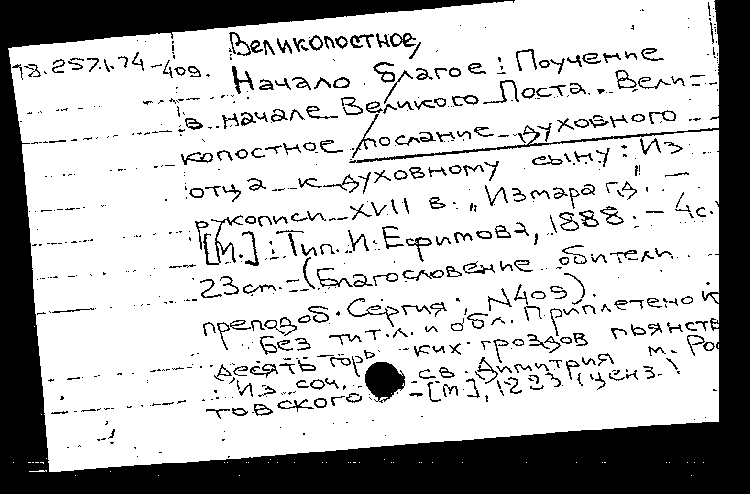 Великопостное
78.257.1.74-409.
Начало благое: Поучение
в начале Великого Поста. Вели-
копостное послание духовного
отца к духовному сыну: Из
рукописи XVII в. „Измарагд". -
[М.]: Тип. И. Ефимова, 1888. - 4с.
23 cm. - (Благословение обители
преподоб. Сергия; N409).
Без тит.л. и обл. Приплетено к
десять горь ких гроздов пьянств
: Из соч. св. Димитрия м. Рос
товского - [М], 1223 (ценз.)